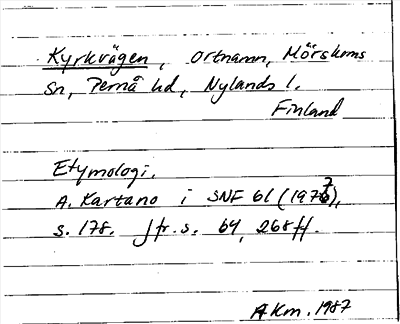 Kyrkvägen, ortnamn, Mörskoms
sn, Pernå hd, Nylands l.
Finland
Etymologi.
A. Kartano i SNF 61 (1977),
s. 178. Jfr. s. 64, 268 ff.
AKm. 1987